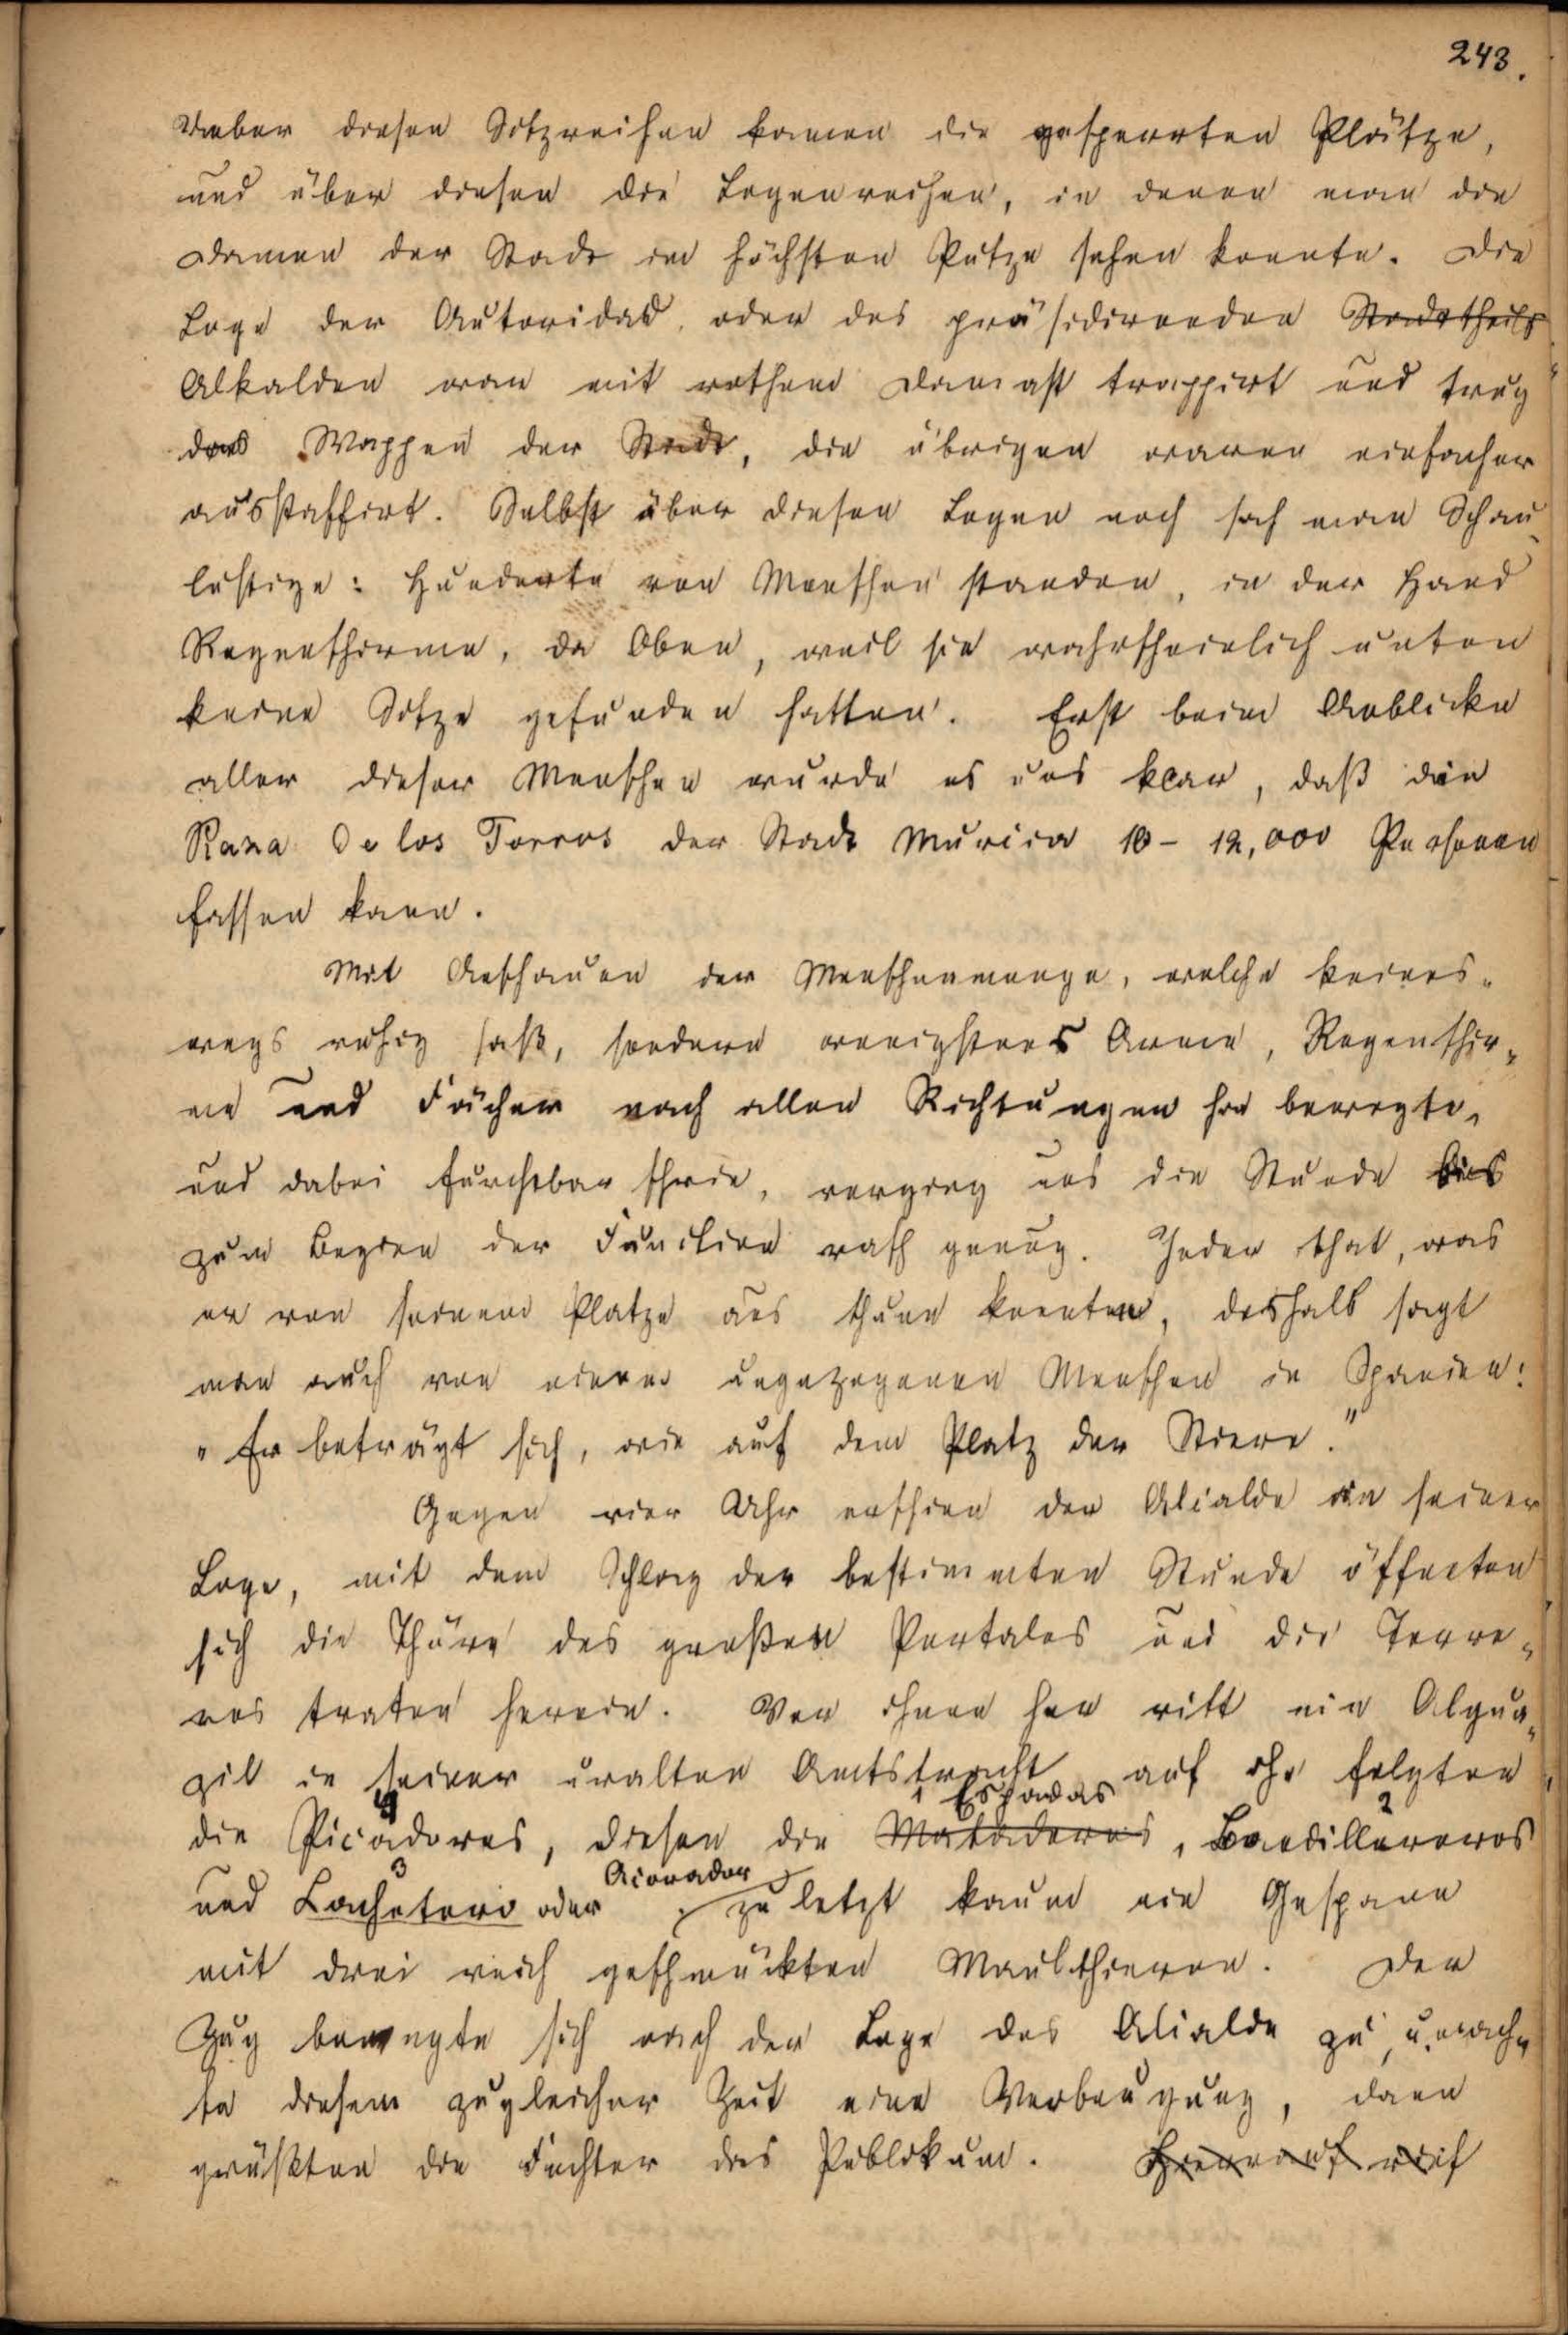 243.
Ueber diesen Sitzreihen kamen die gesperrten Plätze,
und über diesen die Logenreihen, in denen man die
Damen der Stadt im höchsten Putze sehen konnte. Die
Loge der Autoridad, oder des präsidirenden Stadttheils
Alkalden war mit rothem Damast trappirt und trug
das Wappen der Stadt, die übrigen waren einfacher
ausstaffirt. Selbst über diesen Logen noch sah man Schau-
lustige: Hunderte von Menschen standen, in der Hand
Regenschirme, da Oben, weil sie wahrscheinlich unten
keine Sitze gefunden hatten. Erst beim Anblicke
aller dieser Menschen wurde es uns klar, daß die
Plaza de los Torros der Stadt Murcia 10-12,000 Personen
fassen kann.
Mit Anschauen der Menschenmenge, welche keines-
wegs ruhig saß, sondern wenigstens Arme, Regenschir-
me und Fächer nach allen Richtungen hin bewegte,
und dabei furchtbar schrie, verging uns die Stunde bis
zum Beginn der Function rasch genug. Jeder that, was
er von seinem Platze aus thun konnte, deshalb sagt
man auch von einem ungezogenen Menschen in Spanien:
"Er beträgt sich, wie auf dem Platz der Stiere."
Gegen vier Uhr erschien der Alcalde in seiner
Loge, mit dem Schlag der bestimmten Stunde öffneten
sich die Thüre des großen Portales und die Torre-
ros traten herein. Vor ihnen her ritt ein Algua-
zil in seiner uralten Amtstracht, auf ihn folgten
4 1 Espadas 2
die Picadores, diesen die Matadores, Bandillereros
3 Acorador
und Cachetero oder , zu letzt kaum ein Gespann
mit drei reich geschmückten Maulthieren. Der
Zug bewegte sich nach der Loge des Alcalde zu, u. mach-
te diesem zugleicher Zeit eine Verbeugung, dann
grüßten die Fechter das Publikum. Hierauf rief